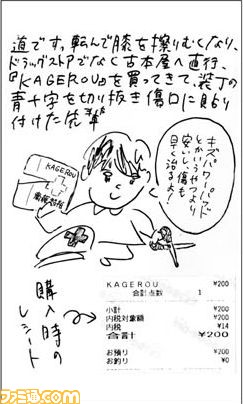 道です。転んで膝を擦りむくなり、
ドラッグストアでなく古本屋へ直行、
『KAGEROU』を買ってきて、装丁の
青十字を切り抜き傷口に貼り
付けた先輩
キズパワーパッド
とかいうやつより
安いし、傷も
早く治るよ!
KAGEROU
KAGEROU ¥200
合計点数 1
小計 ¥200
内税対象額 ¥200
内税 ¥14
合計 ¥200
お預り ¥200
お釣り ¥0
購入時の
レシート
ファミ通.com